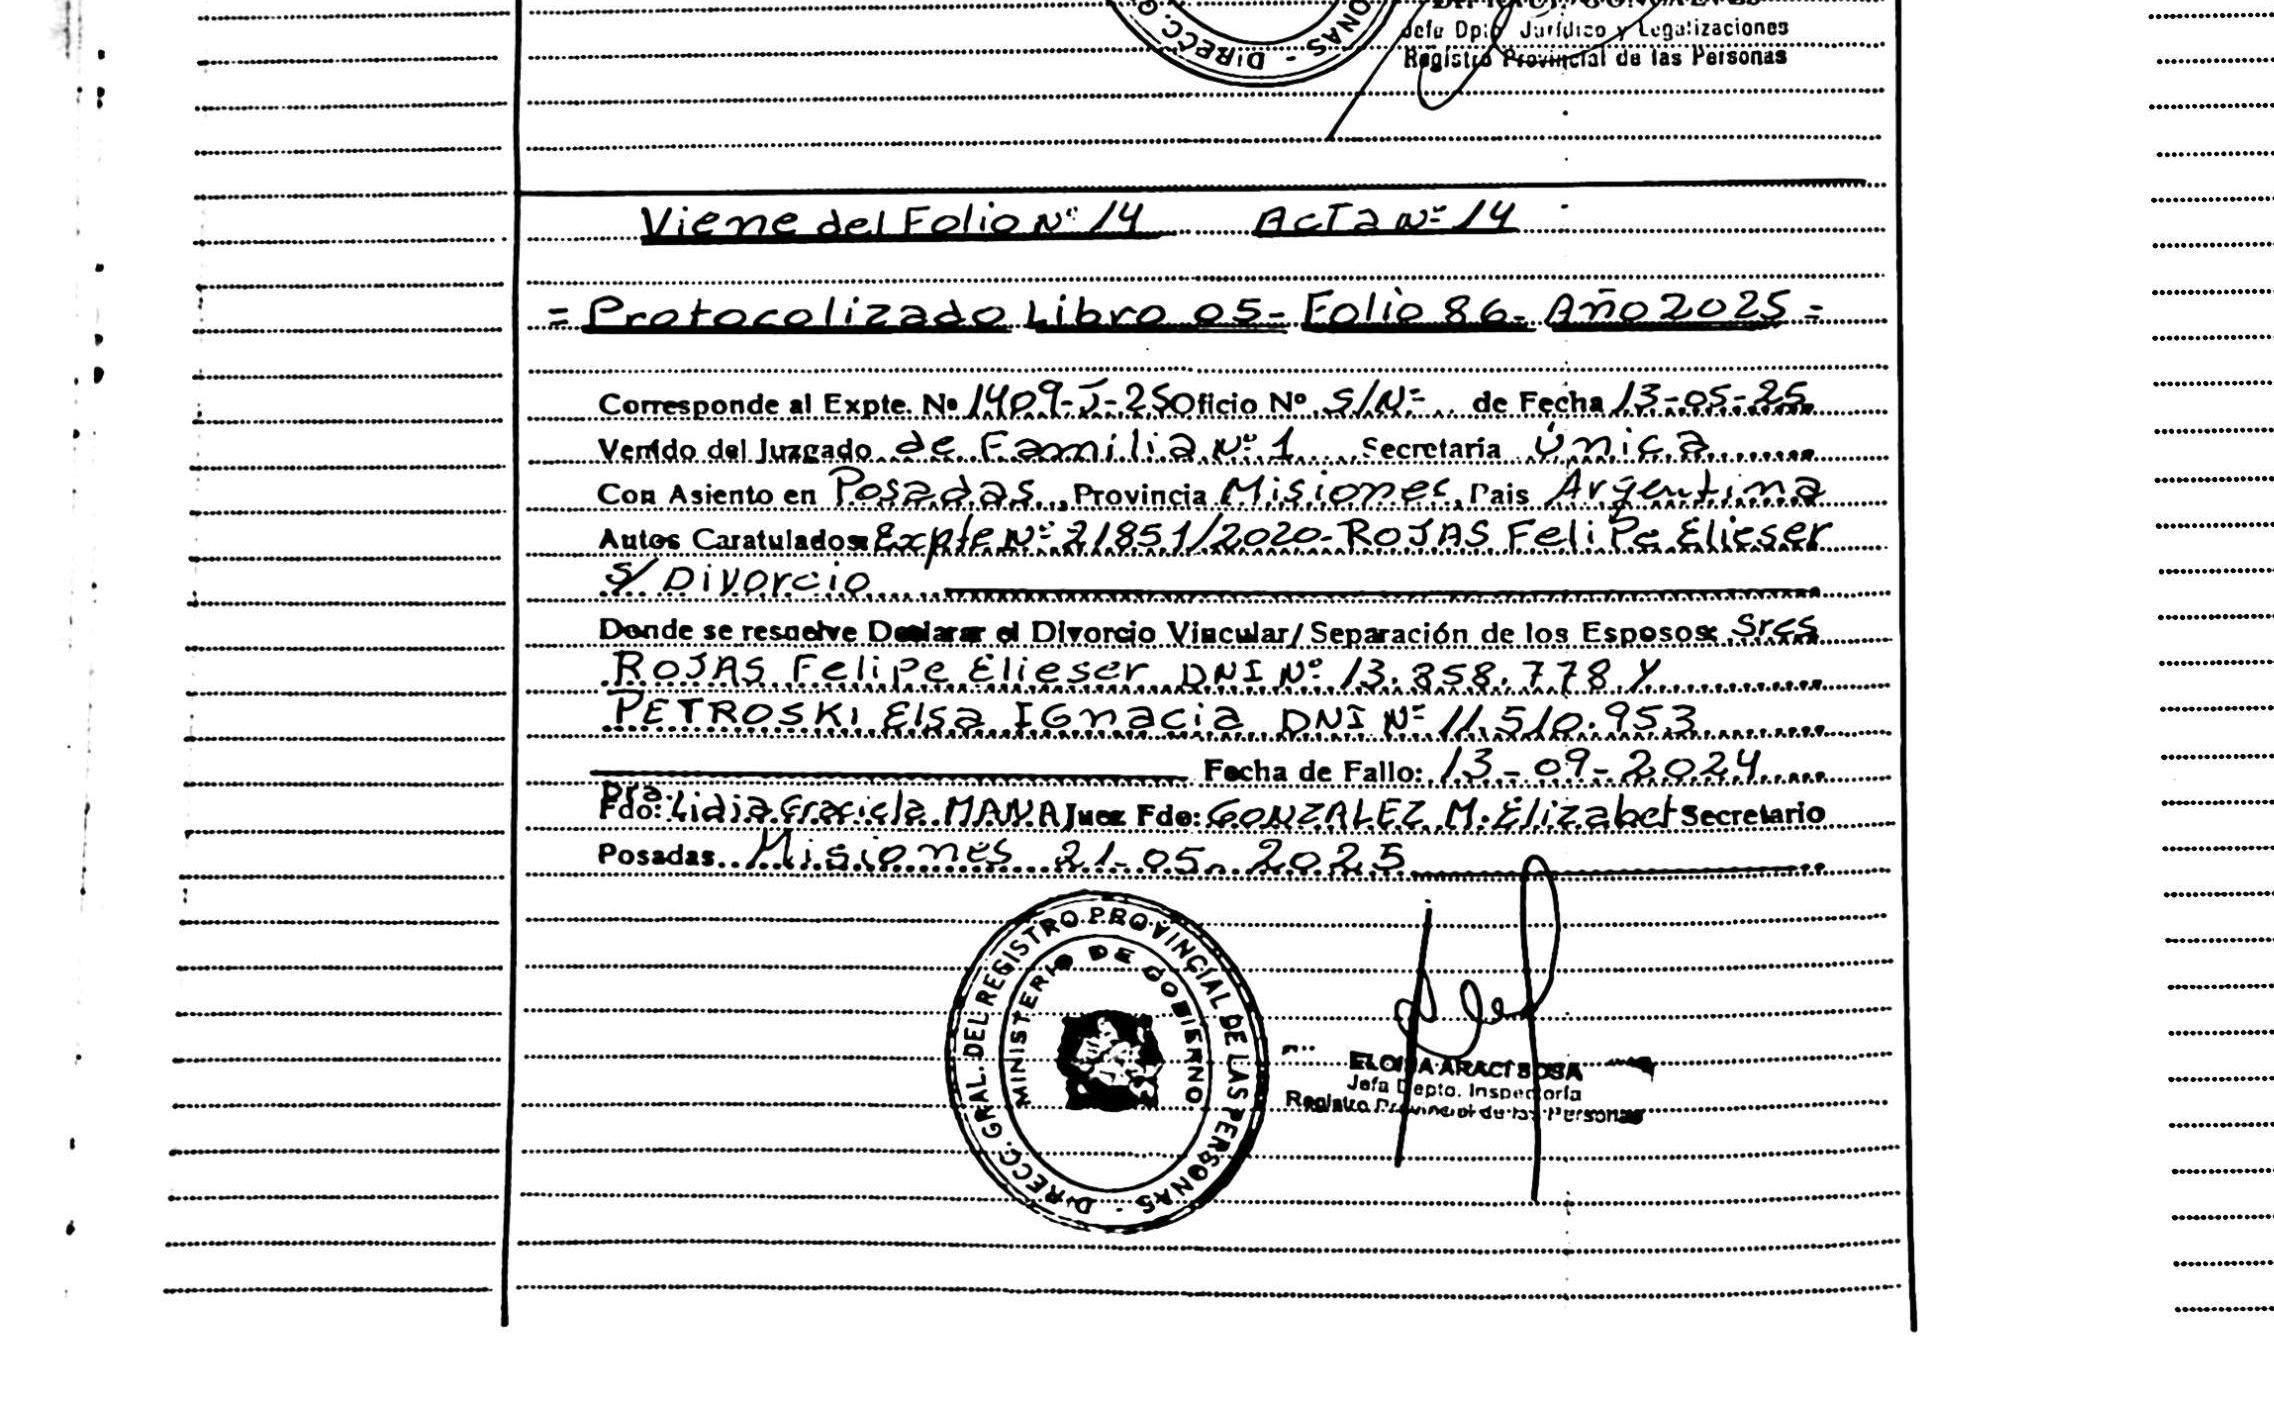 Jefa Dpto Jurídico y Legalizaciones
Registro Provincial de las Personas
DIRECC. G
ONAS -
Viene del Folio Nº 14 Acta Nº 14
= Protocolizado Libro 05- Folio 86- Año 2025 =
Corresponde al Expte. Nº 1409-J-25 Oficio Nº S/Nº de Fecha 13-05-25
Venido del Juzgado de Familia Nº 1 Secretaría Única
Con Asiento en Posadas, Provincia Misiones, País Argentina
Autos Caratulados: Expte Nº 21851/2020- ROJAS Felipe Elieser
s/ Divorcio
Donde se resuelve Declarar el Divorcio Vincular/Separación de los Esposos: Sres
ROJAS Felipe Elieser DNI Nº 13.858.778 y
PETROSKI Elsa IGnacia DNI Nº 11.510.953
Fecha de Fallo: 13-09-2024
Dra.
Fdo: Lidia Graciela MANA Juez Fdo: GONZALEZ M. Elizabet Secretario
Posadas Misiones 21-05-2025
DIRECC. GRAL. DEL REGISTRO PROVINCIAL DE LAS PERSONAS -
MINISTERIO DE GOBIERNO
ARACÍ SOSA
Jefa Depto. Inspectoría
Registro Provincial de las Personas